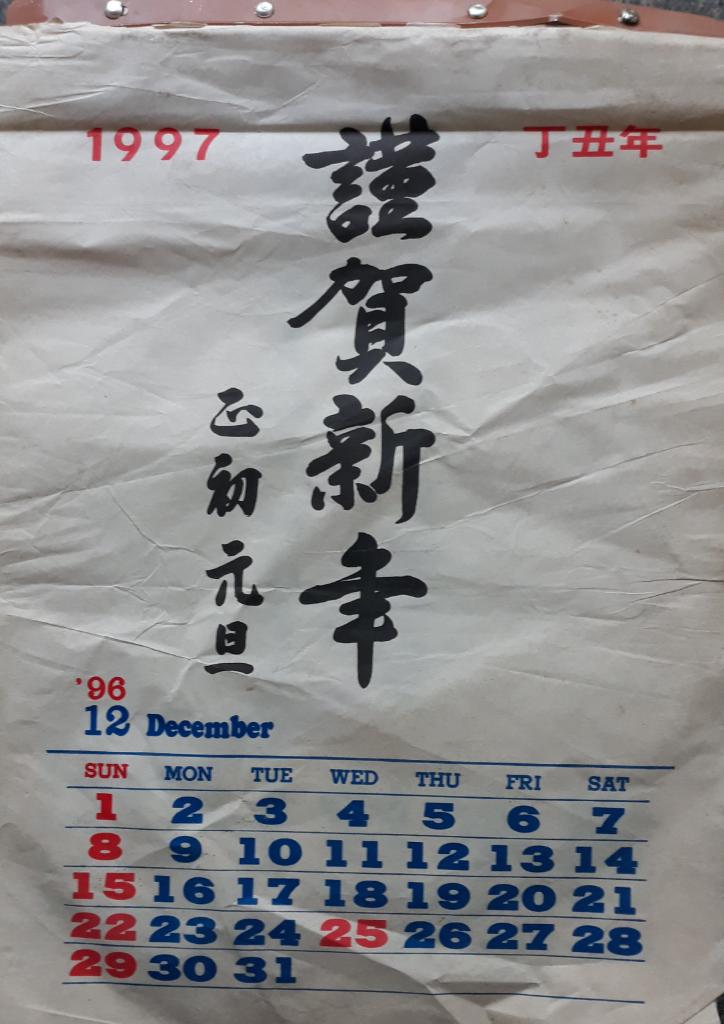 1997 丁丑年
謹賀新年
正初 元旦
'96
12 December
SUN MON TUE WED THU FRI SAT
1 2 3 4 5 6 7
8 9 10 11 12 13 14
15 16 17 18 19 20 21
22 23 24 25 26 27 28
29 30 31